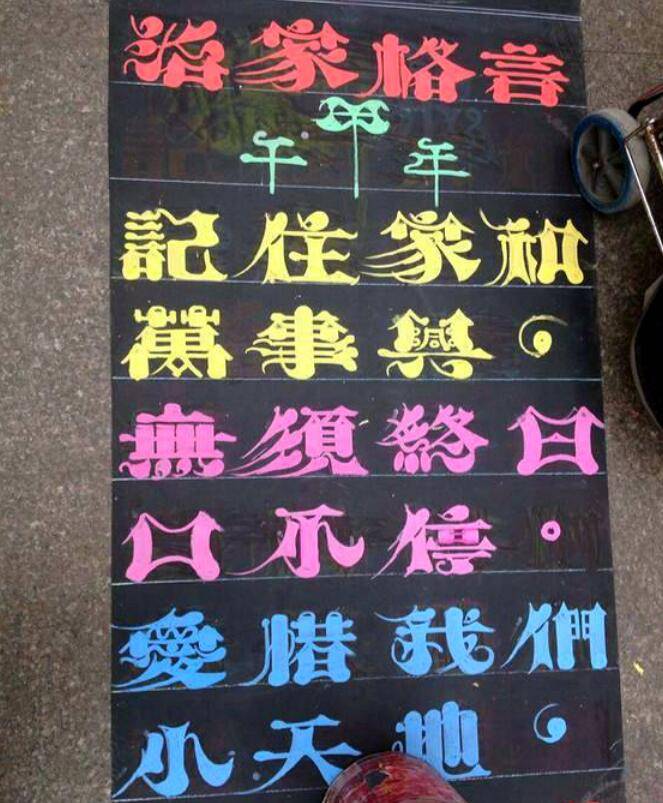 治家格言
甲
午年
記住家和
萬事興。
無須終日
口不停。
愛惜我們
小天地。